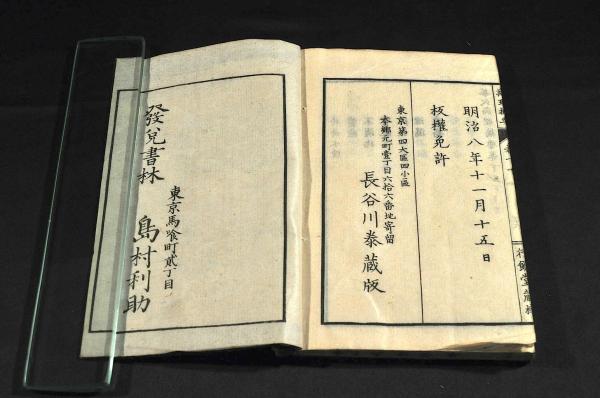 明治八年十一月十五日
板權免許
東京第四大區四小區
本鄉元町壹丁目六拾六番地寄留
長谷川泰藏版
東京馬喰町貳丁目
發兌書林 島村利助